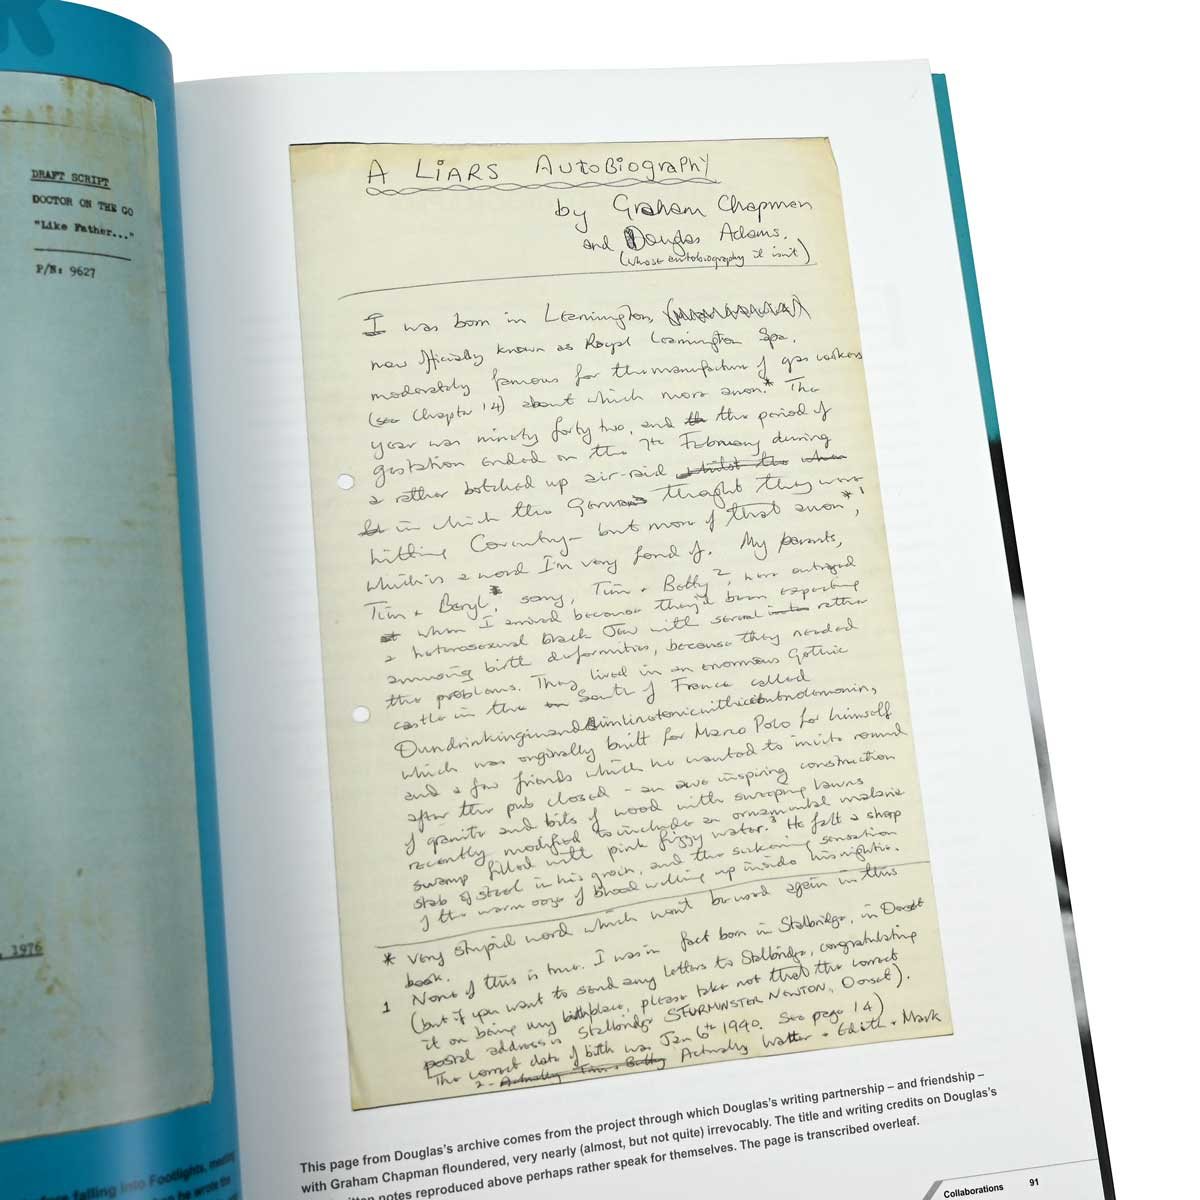 DRAFT SCRIPT
DOCTOR ON THE GO
"Like Father..."
P/N: 9627
, 1976
A LIARS AUTOBIOGRAPHY
by Graham Chapman
and Douglas Adams.
(whose autobiography it isn't)
I was born in Leamington,
now officially known as Royal Leamington Spa,
moderately famous for the manufacture of gas cookers
(see Chapter 14) about which more anon.* The
year was ninety forty two, and the period of
gestation ended on the 7th February during
a rather botched up air-raid whilst the when
in which the Germans thought they were
hitting Coventry – but more of that anon*,1
which is a word I'm very fond of. My parents,
Tim + Beryl*, sorry, Tim + Betty2, were outraged
when I arrived because they'd been expecting
a heterosexual black Jew with several rather
amusing birth deformities, because they needed
the problems. They lived in an enormous Gothic
castle in the South of France called
which was originally built for Marco Polo for himself
and a few friends which he wanted to invite round
after the pub closed – an awe inspiring construction
of granite and bits of wood with sweeping lawns
recently modified to include an ornamental malaria
swamp filled with pink fizzy water.3 He felt a sharp
stab of steel in his groin, and the sickening sensation
of the warm ooze of blood welling up inside his nightie.
* Very stupid word which won't be used again in this
book.
1 None of this is true. I was in fact born in Stalbridge, in Dorset
(but if you want to send any letters to Stalbridge, congratulating
it on being my birthplace, please take not that the correct
postal address is Stalbridge STURMINSTER NEWTON, Dorset).
The correct date of birth was Jan 6th 1940. See page 14)
2 - Actually Tim + Betty Actually Walter + Edith + Mark
This page from Douglas's archive comes from the project through which Douglas's writing partnership – and friendship –
with Graham Chapman floundered, very nearly (almost, but not quite) irrevocably. The title and writing credits on Douglas's
notes reproduced above perhaps rather speak for themselves. The page is transcribed overleaf.
falling into Footlights,
he wrote the
Collaborations 91